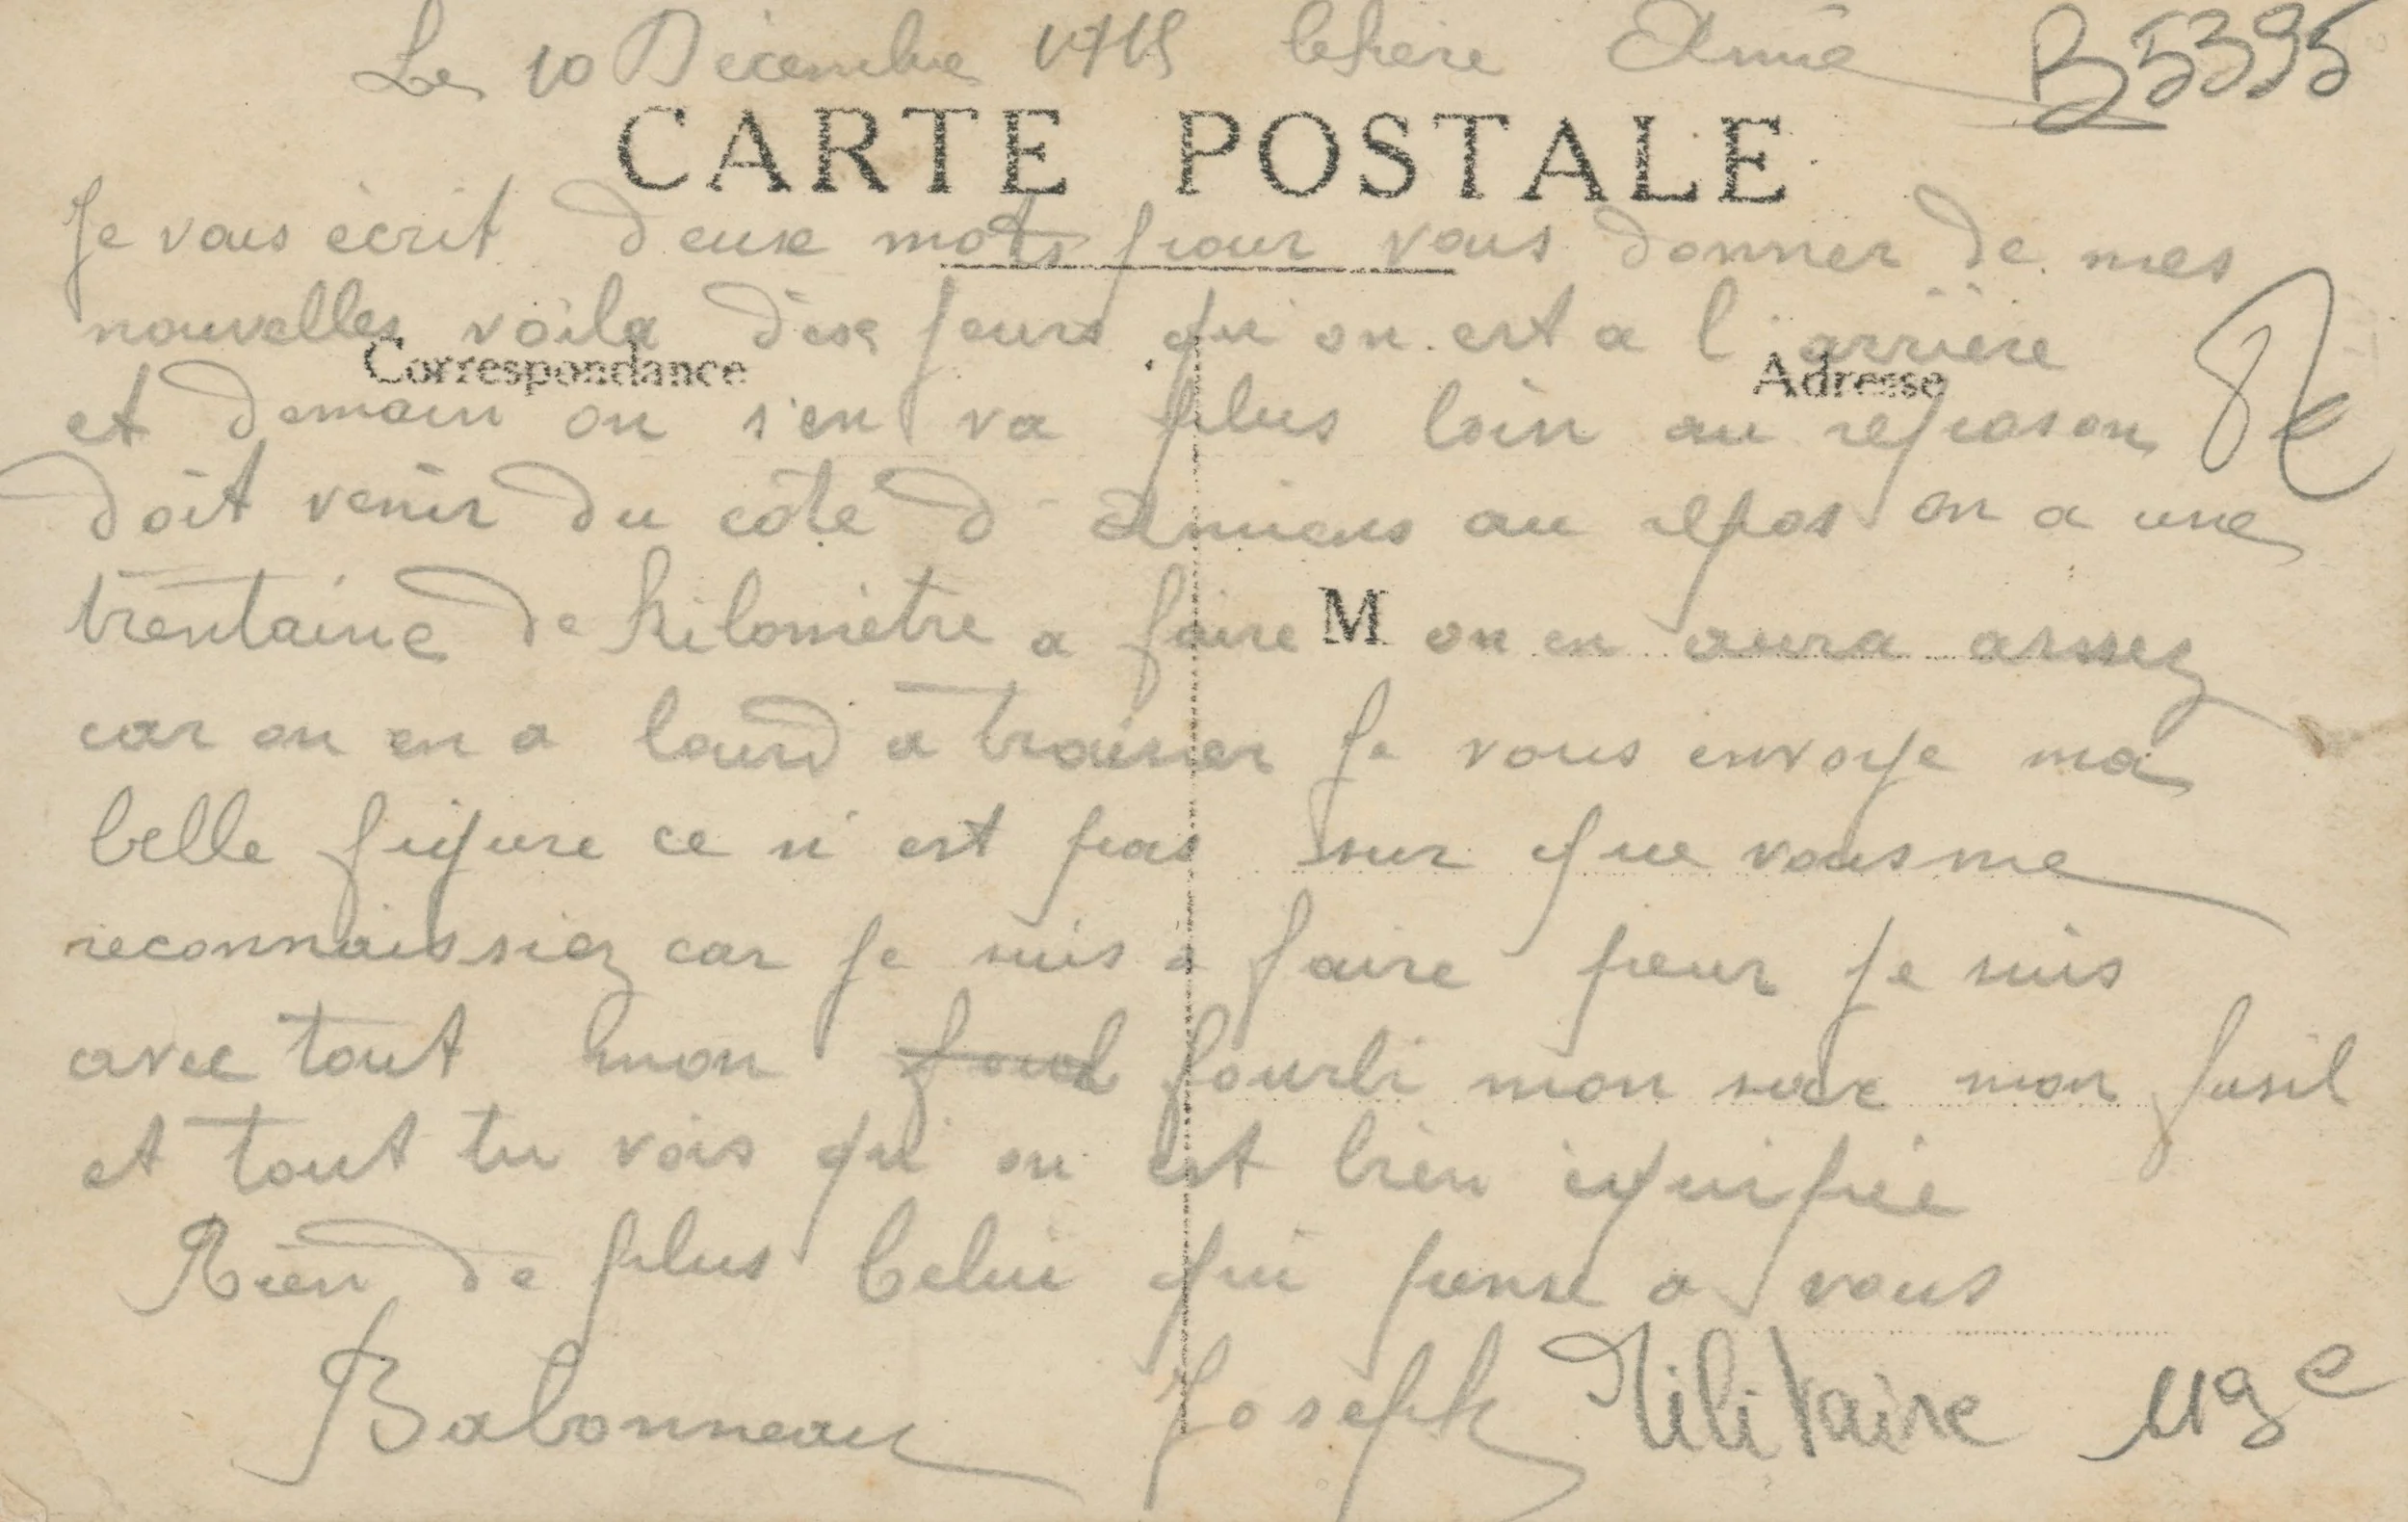 Le 10 Décembre 1915 Chère Aimé B5395
CARTE POSTALE
Je vous écrit deux mots pour vous donner de mes
nouvelles voila dix jours qu'on est a l'arrière
Correspondance Adresse
et demain on s'en va plus loin au repos on
doit venir du côté d'Amiens au repos on a une
trentaine de kilomètre a faire M on en aura assez
car on en a lourd a trainer Je vous envoye ma
belle figure ce n'est pas sur que vous me
reconnaissiez car je suis a faire peur je suis
avec tout mon fourbi mon sac mon fusil
et tout tu vois qu'on est bien équipée
Rien de plus Celui qui pense a vous
Babonneau Joseph Militaire 119e